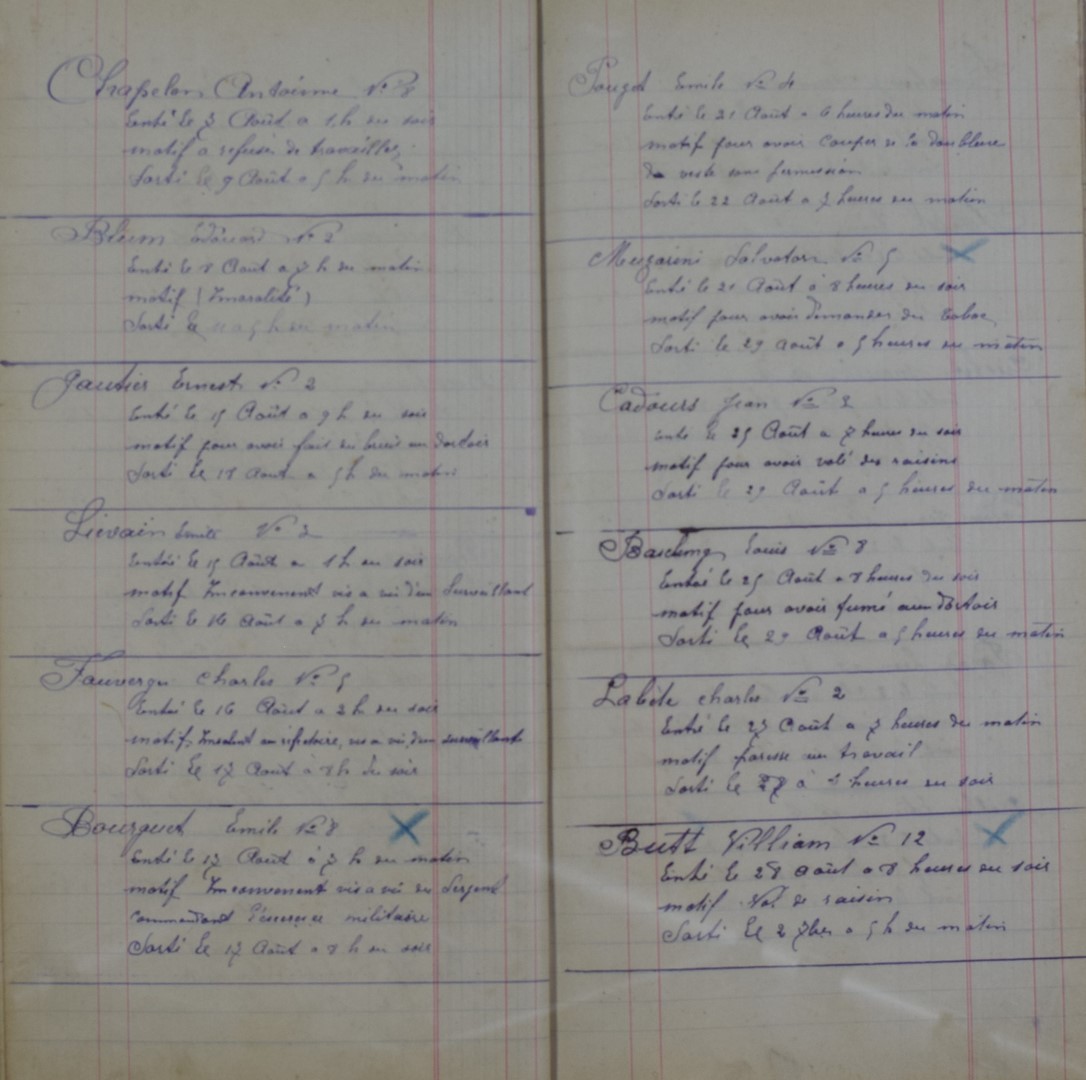 Chapelon Antoinne No 8
Entré le 3 Août a 1 h du soir
motif a refuser de travailler,
Sorti le 9 Août a 5 h du matin
Blum Edouard No 2
Entré le 8 Août a 7 h du matin
motif (Imoralité)
Sorti le 11 a 5 h du matin
Gautier Ernest No 2
Entré le 15 Août a 9 h du soir
motif pour avoir fait du bruit au dortoir
Sorti le 18 Aout a 5 h du matin
Lievain Emile No 2
Entré le 15 Août a 1 h du soir
motif Inconvenant vis a vis d'un Surveillant
Sorti le 16 Août a 7 h du matin
Fauvergu Charles No 5
Entré le 16 Août a 2 h du soir
motif, Insolent au réfectoire, vis a vis d'un surveillant
Sorti le 17 Août à 8 h du soir
Bourguet Emile No 8
Entré le 17 Août à 7 h du matin
motif Inconvenant vis a vis du Sergent
commandant l'exercice militaire
Sorti le 17 Août a 8 h du soir
Emile No 4
Entré le 21 Août a 6 heures du matin
motif pour avoir couper la doublure
de veste sans permission
Sorti le 22 Août a 7 heures du matin
Salvatore No 5
Entré le 21 Août à 8 heures du soir
motif pour avoir demander du tabac
Sorti le 29 Août a 5 heures du matin
Cadours Jean No 2
Entré le 25 Août a 7 heures du soir
motif pour avoir volé des raisins
Sorti le 29 Août a 5 heures du matin
Louis No 8
Entré le 25 Août a 8 heures du soir
motif pour avoir fumé au dortoir
Sorti le 29 Août a 5 heures du matin
Labéte charles No 2
Entré le 27 Août a 7 heures du matin
motif paresse au travail
Sorti le 27 à heures du soir
Butt William No 12
Entré le 28 Août a 8 heures du soir
motif Vol de raisin
Sorti le 2 7bre a 5 h du matin